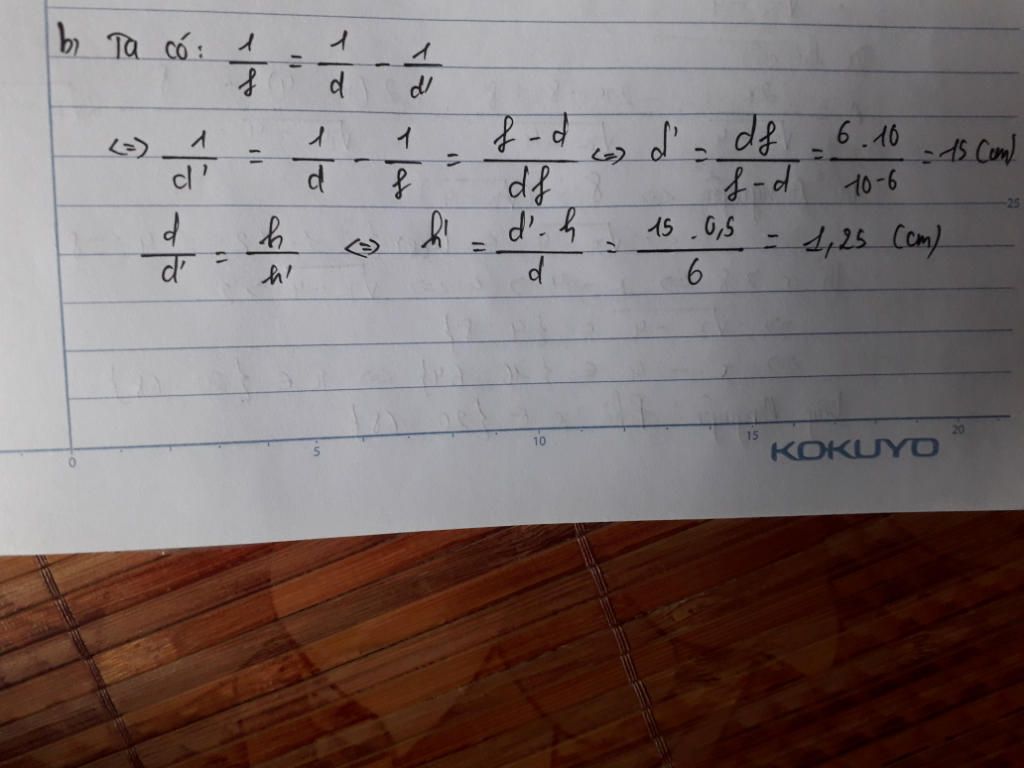 b, Ta có: 1/f = 1/d - 1/d'
<=> 1/d' = 1/d - 1/f = (f - d)/(df) <=> d' = df/(f - d) = (6 . 10)/(10 - 6) = 15 (cm)
d/d' = h/h' <=> h' = (d' . h)/d = (15 . 0,5)/6 = 1,25 (cm)
25
0 5 10 15 20
KOKUYO